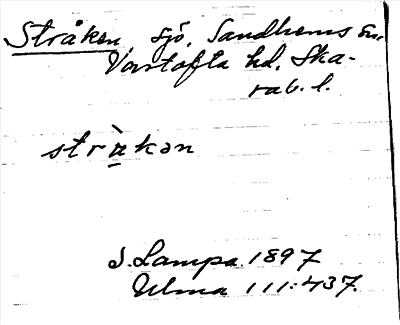 Stråken, sjö, Sandhems sn.
Vartofta hd. Ska-
rab. l.
stràkən
S. Lampa. 1897
Ulma 111:437.